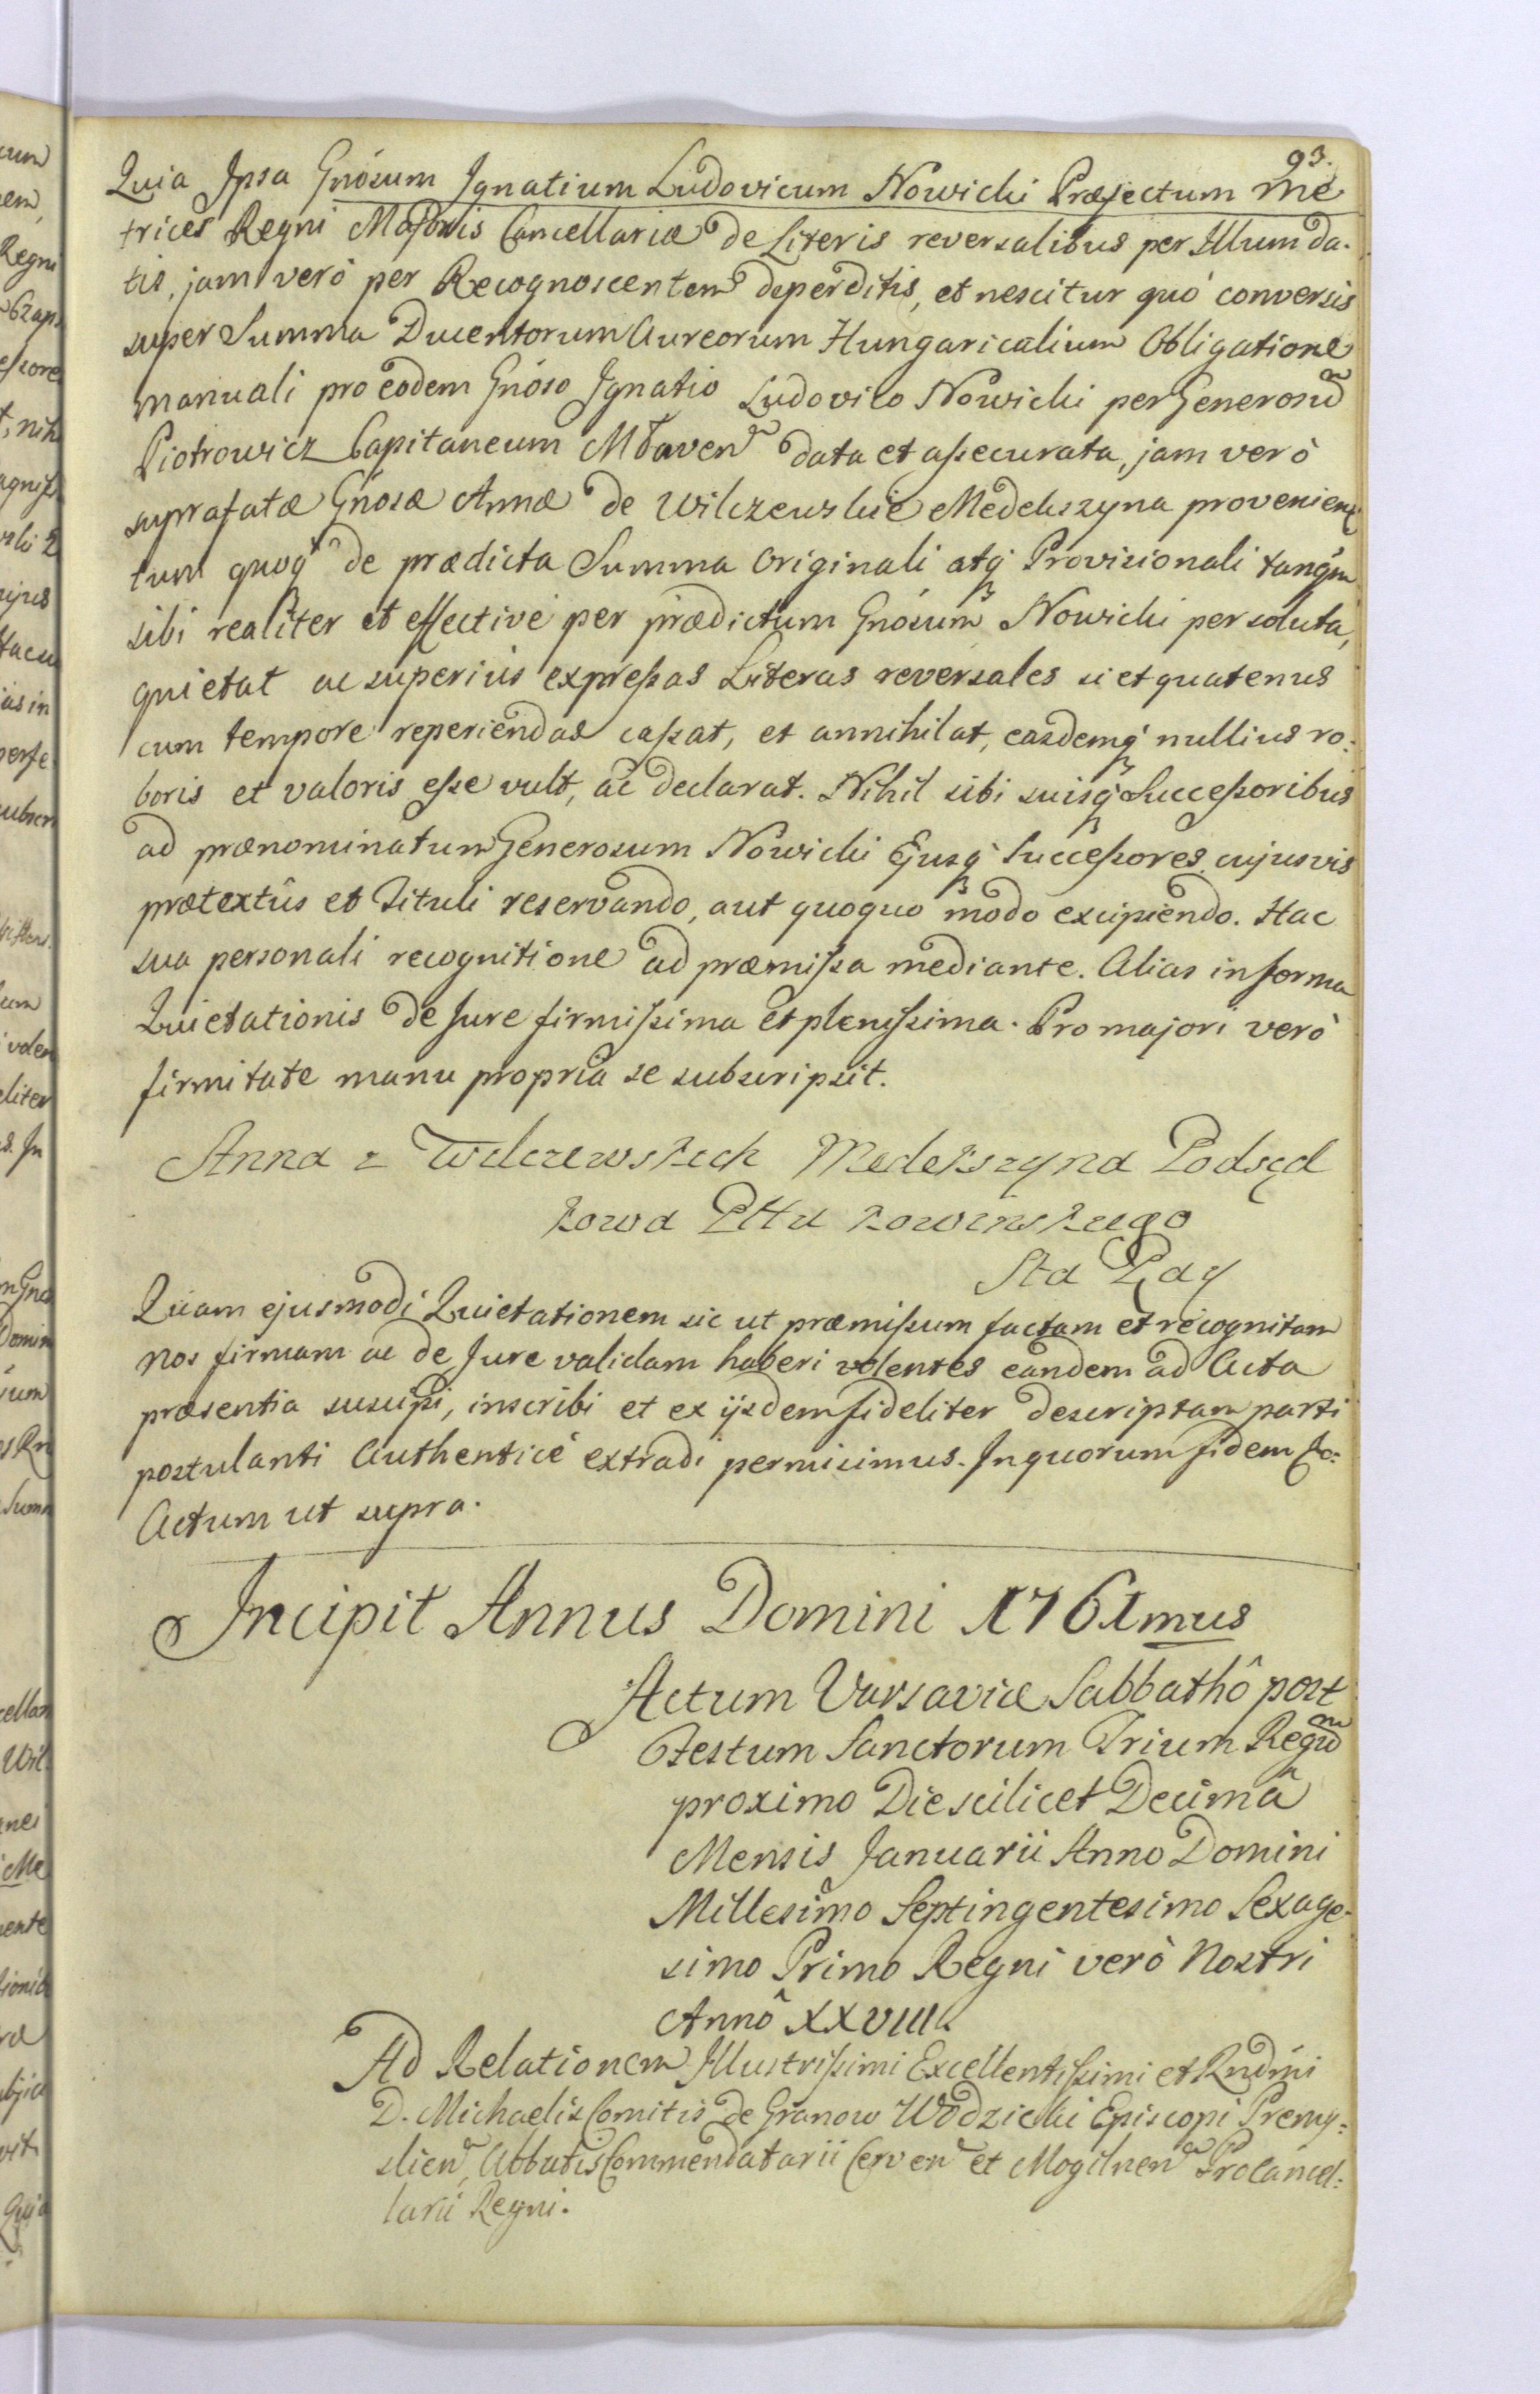 93.
Quia Ipsa Gnósum Ignatium Ludovicum Nowicki Præfectum Me
trices Regni Majoris Cancellariæ de Literis reversalibus per Illum da-
tis, jam verò per Recognoscentem deperditis, et nescitur quò conversis
super Summa Ducentorum Aureorum Hungaricalium Obligatione
manuali pro eodem Gnóso Ignatio Ludovico Nowicki per Generosũ
Piotrowicz Capitaneum Mław̃en data et aßecurata, jam verò
suprafatæ Gnósæ Annæ de Wilczewskie Medekszyna provenien
tum quoq́ de prædicta Summa Originali atq́ Provisionali tanq́m
sibi realiter et effectivè per prædictum Gnósum Nowicki persoluta,
quietat ac superiùs expreßas Literas reversales si et quatenus
cum tempore reperiendas caßat, et annihilat, easdemq́ nullius ro:
boris et valoris eße vult, ac declarat. Nihil sibi suisq́ Succeßoribus
ad prænominatum Generosum Nowicki Ejusq́ Succeßores cujusvis
prætextûs et Tituli reservando, aut quoquo modo excipiendo. Hac
sua personali recognitione ad præmißa mediante. Alias in forma
Quietationis de Jure firmißima et plenißima. Pro majori verò
firmitate manu propria se subscripsit.
Anna z Wilczewskich Medekszyna Podsęd
kowa Pttu kowinskiego
Quam ejusmodi Quietationem sic ut præmißum factam et recognitam
Nos firmam ac de Jure validam haberi volentes eandem ad Acta
præsentia suscipi, inscribi et ex ijsdem fideliter descriptam parti
postulanti Authenticè extradi permisimus. In quorum fidem &c:
Actum ut supra.
Incipit Annus Domini 1761mus
Actum Varsaviæ Sabbathô post
Festum Sanctorum Trium Regũ
proximo Die scilicet Decimâ
Mensis Januarii Anno Domini
Millesimo Septingentesimo Sexage-
simo Primo Regni verò Nostri
Annô XXVIII.
Ad Relationem Illustrißimi Excellentißimi et Rndmi
D. Michaelis Comitis de Granow Wodzicki Episcopi Premy:
slien̄, Abbatis Commendatarii Cerven̄ et Mogilnen̄ Procancel:
larii Regni.